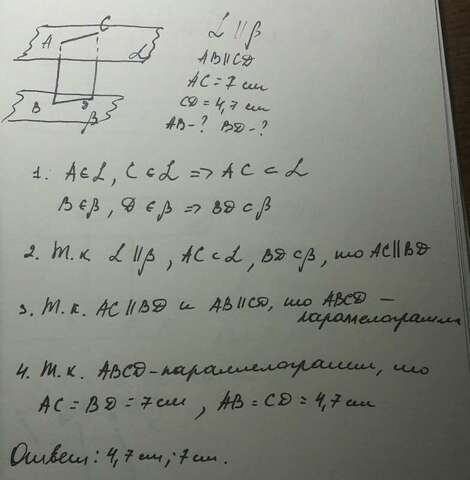 A C α
B D β
α || β
AB || CD
AC = 7 см
CD = 4,7 см
AB - ? BD - ?
1. A ∈ α, C ∈ α => AC ⊂ α
B ∈ β, D ∈ β => BD ⊂ β
2. Т.к. α || β, AC ⊂ α, BD ⊂ β, то AC || BD
3. Т.к. AC || BD и AB || CD, то ABCD -
параллелограмм
4. Т.к. ABCD - параллелограмм, то
AC = BD = 7 см, AB = CD = 4,7 см
Ответ: 4,7 см; 7 см.